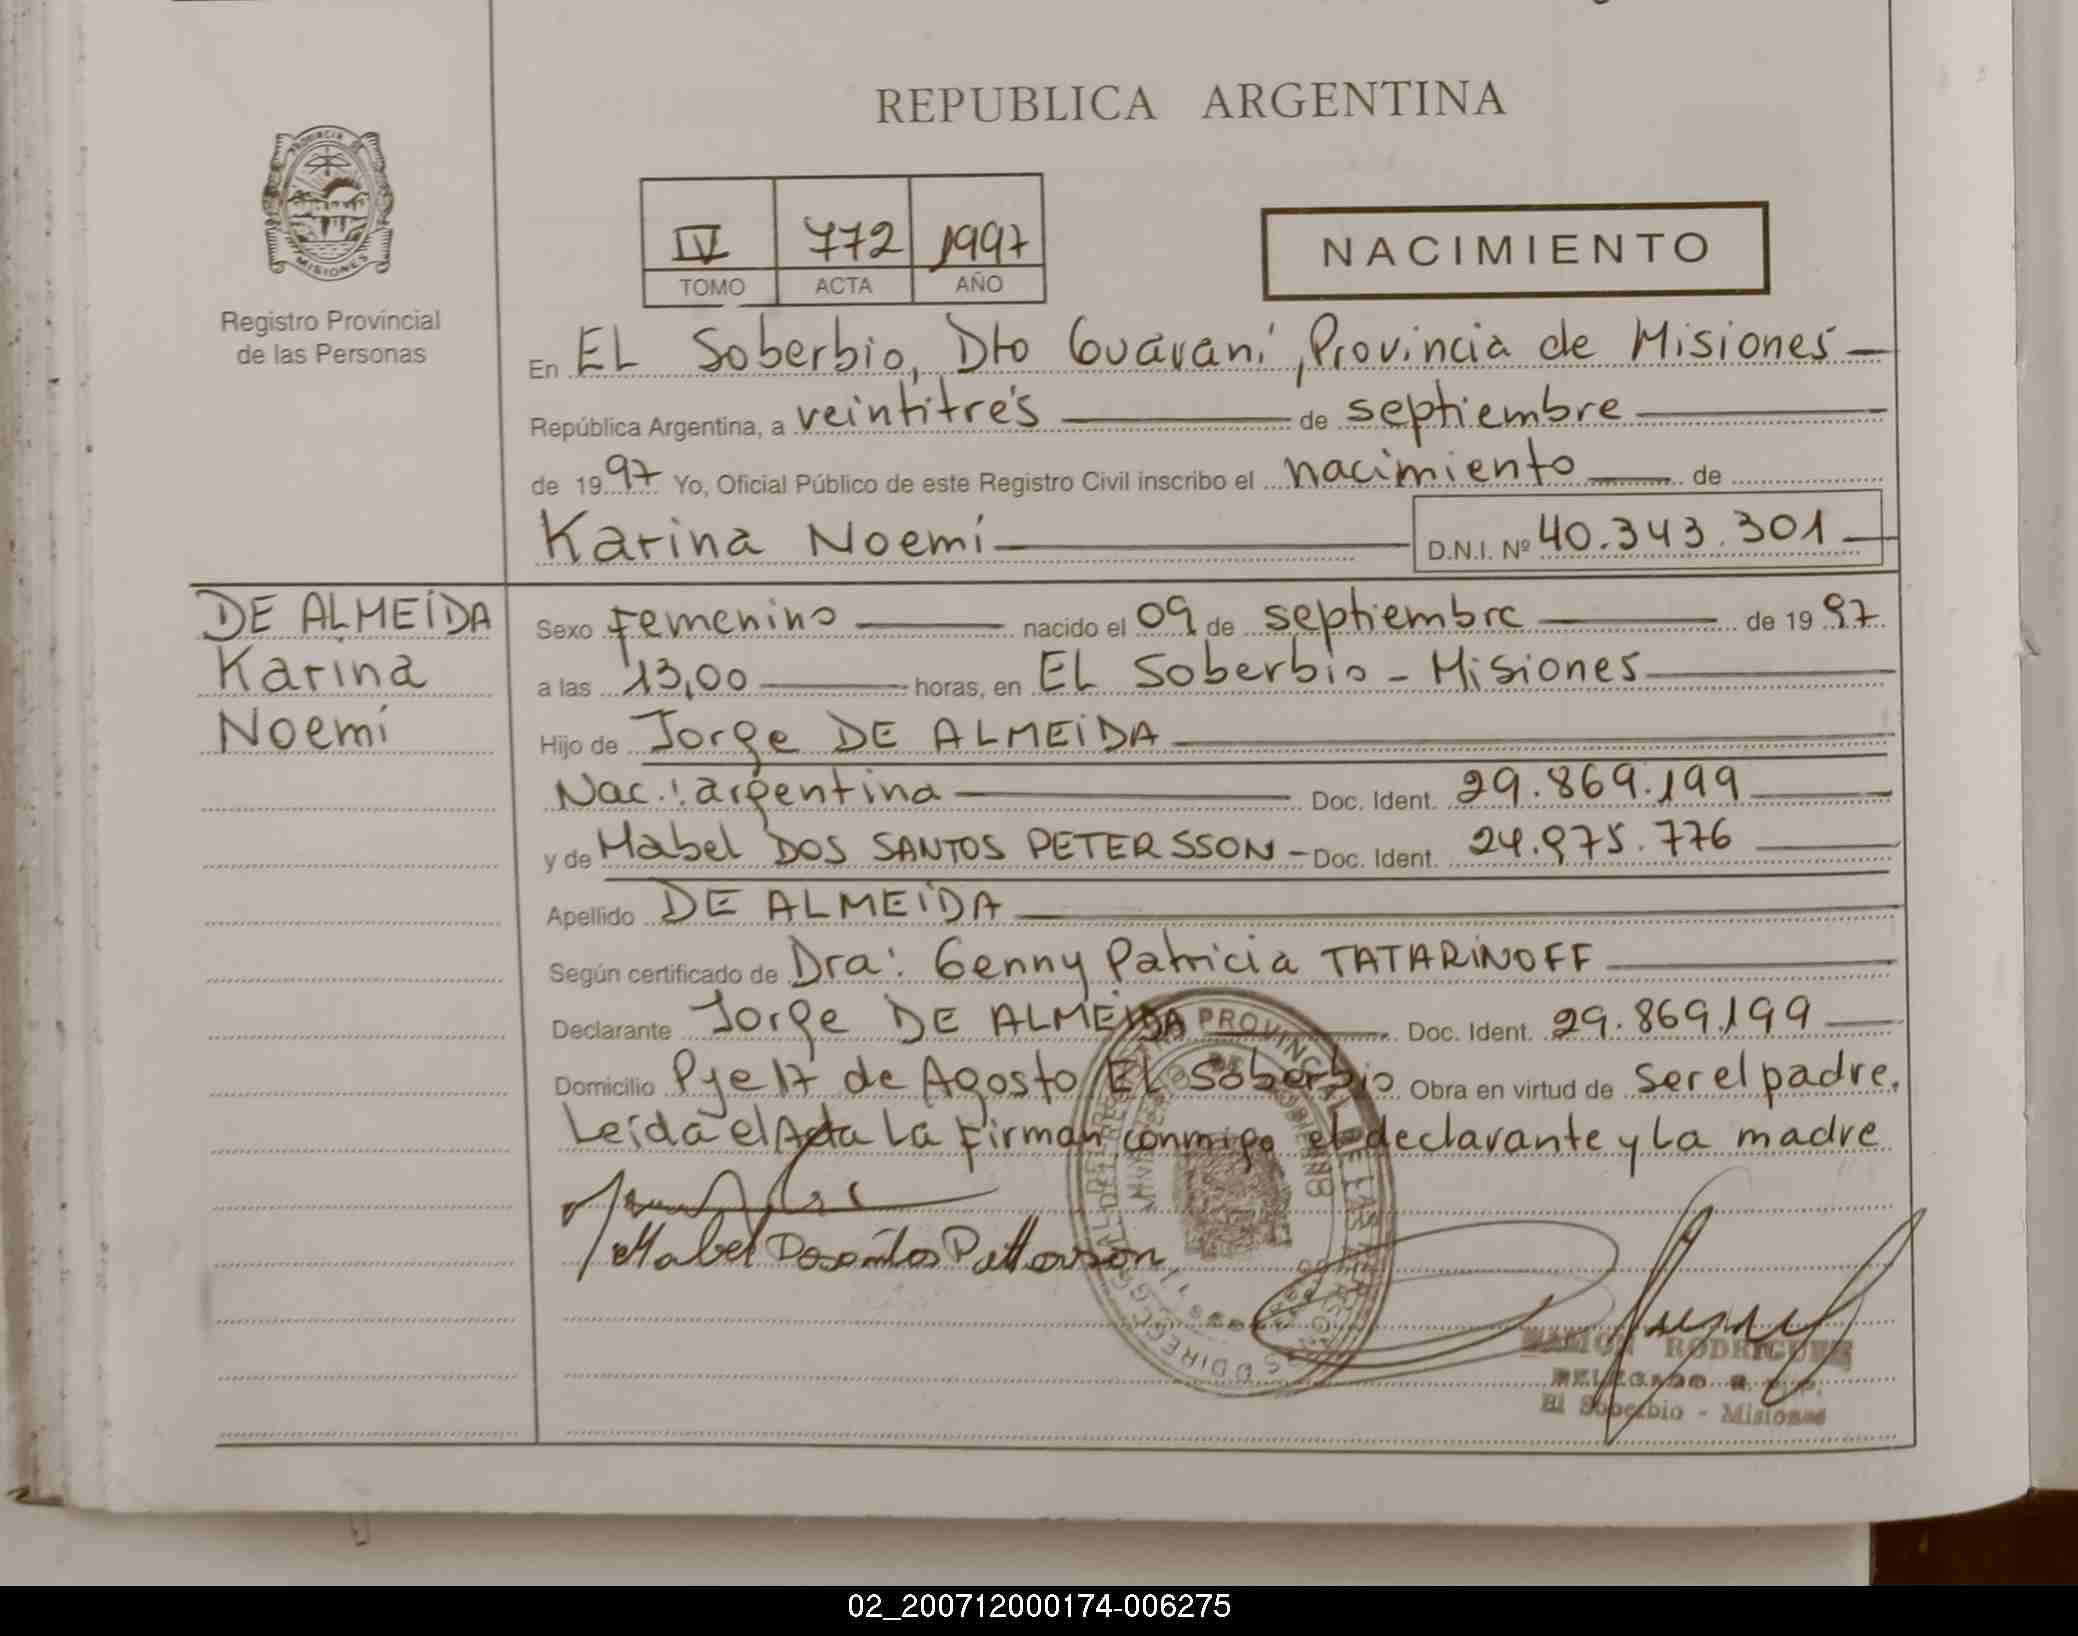 REPUBLICA ARGENTINA
PROVINCIA DE
MISIONES
Registro Provincial
de las Personas
IV 772 1997
TOMO ACTA AÑO
NACIMIENTO
En EL Soberbio, Dto Guaraní, Provincia de Misiones
República Argentina, a veintitrés de septiembre
de 1997 Yo, Oficial Público de este Registro Civil inscribo el nacimiento de
Karina Noemí D.N.I. Nº 40.343.301
DE ALMEIDA
Karina
Noemí
Sexo Femenino nacido el 09 de septiembre de 1997
a las 13,00 horas, en EL Soberbio - Misiones
Hijo de Jorge DE ALMEIDA
Nac.: argentina Doc. Ident. 29.869.199
y de Mabel DOS SANTOS PETERSSON - Doc. Ident. 24.975.776
Apellido DE ALMEIDA
Según certificado de Dra: Genny Patricia TATARINOFF
Declarante Jorge DE ALMEIDA Doc. Ident. 29.869.199
Domicilio Pje 17 de Agosto EL Soberbio Obra en virtud de ser el padre.
Leída el Acta La Firman conmigo el declarante y La madre
Mabel
PROVINCIAL DE LAS
RAMON RODRIGUEZ
DELEGADO R. P. P.
El Soberbio - Misiones
02_200712000174-006275